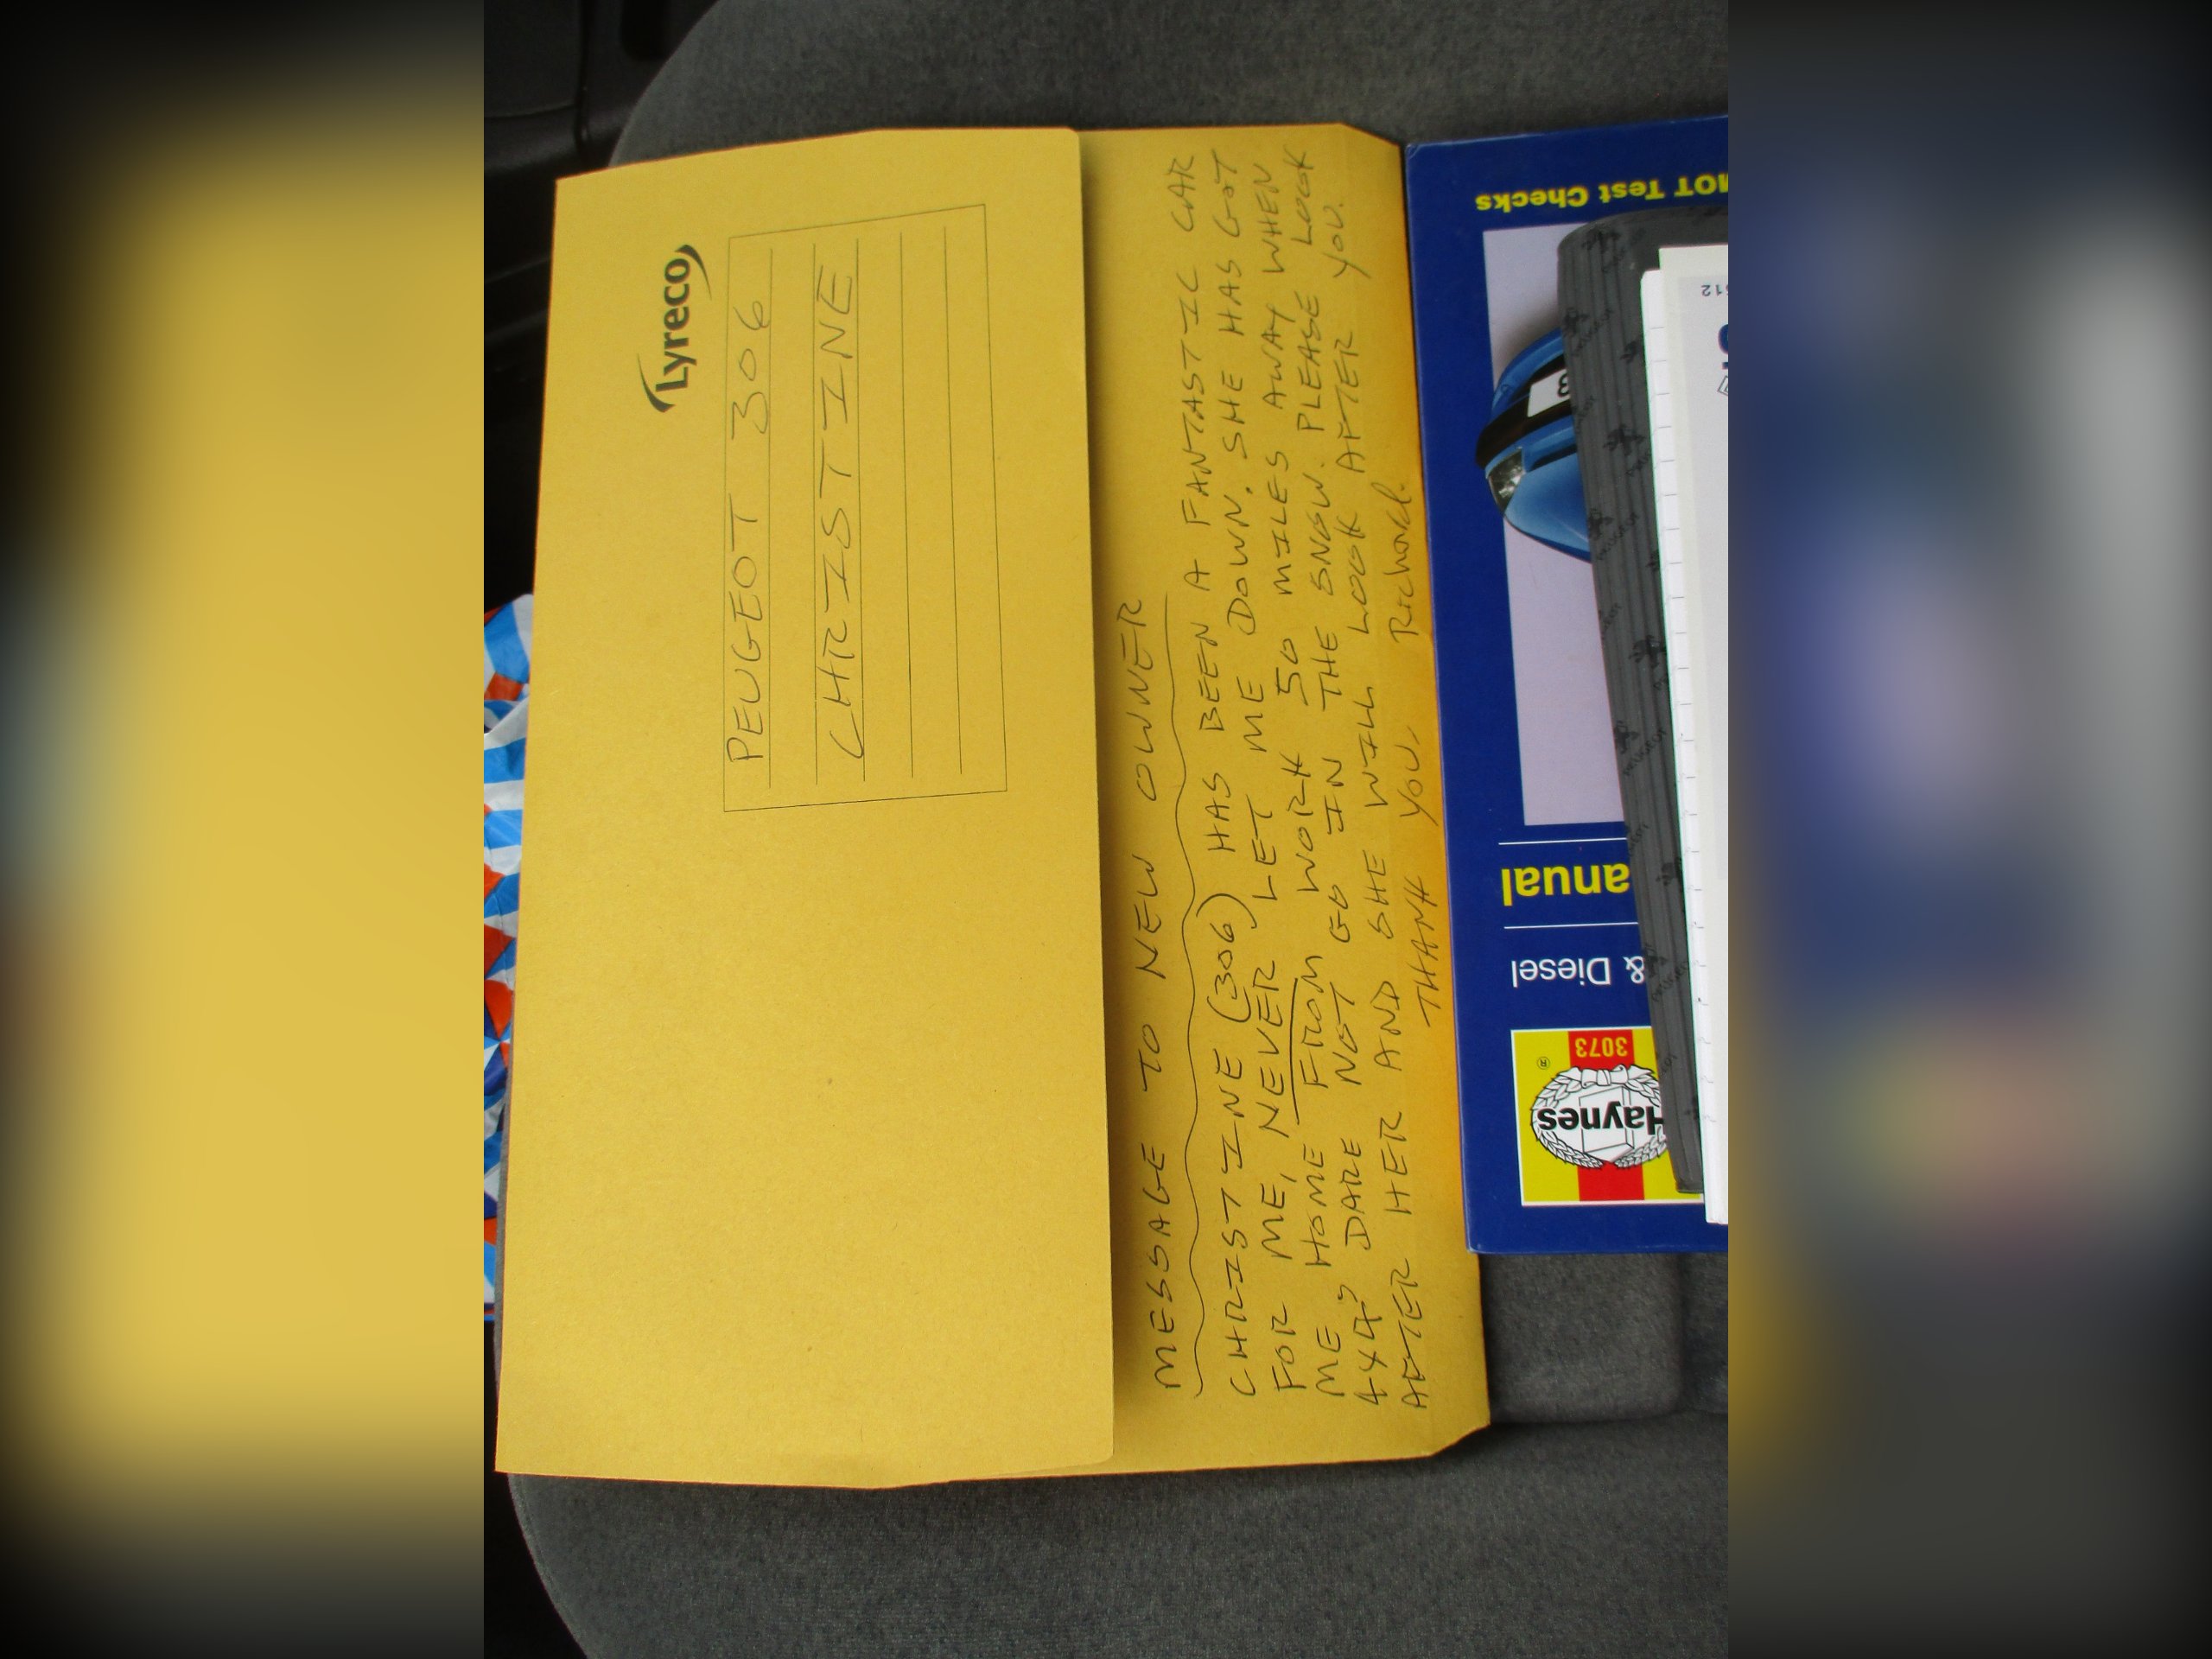 Lyreco
PEUGEOT 306
CHRISTINE
MESSAGE TO NEW OWNER
CHRISTINE (306) HAS BEEN A FANTASTIC CAR
FOR ME, NEVER LET ME DOWN, SHE HAS GOT
ME HOME FROM WORK 50 MILES AWAY WHEN
4X4? DARE NOT GO IN THE SNOW. PLEASE LOOK
AFTER HER AND SHE WILL LOOK AFTER YOU.
THANK YOU, Richard.
MOT Test Checks
anual
& Diesel
3073
®
Haynes